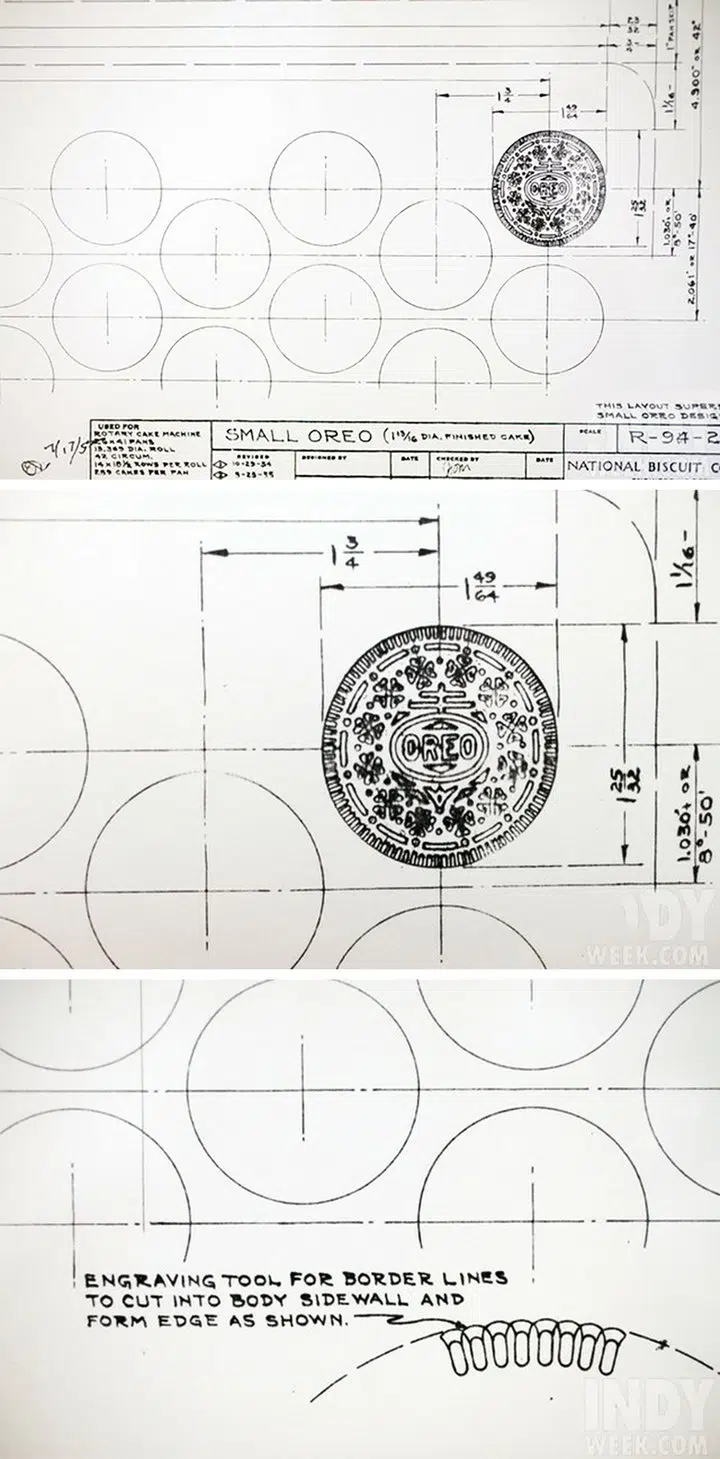 1" PAN SKIP
4.900" OR 42°
1 1/16-
1 3/4
1 49/64
OREO
1 25/32
1.030"+ OR
8°-50'
2.061" OR 17°-40'
THIS LAYOUT
SMALL OREO
USED FOR
ROTARY CAKE MACHINE
26X41 PANS
DIA. ROLL
42 CIRCUM.
14 X 18 1/2 ROWS PER ROLL
CAKES PER PAN
SMALL OREO (1 13/16 DIA. FINISHED CAKE)
SCALE
R-94-2
REVISED
10-23-54
DESIGNED BY
DATE
CHECKED BY
DATE
NATIONAL BISCUIT CO
1 3/4
1 49/64
1 1/16-
OREO
1 25/32
1.030"+ OR
8°-50'
DY
WEEK.COM
ENGRAVING TOOL FOR BORDER LINES
TO CUT INTO BODY SIDEWALL AND
FORM EDGE AS SHOWN.
INDY
WEEK.COM